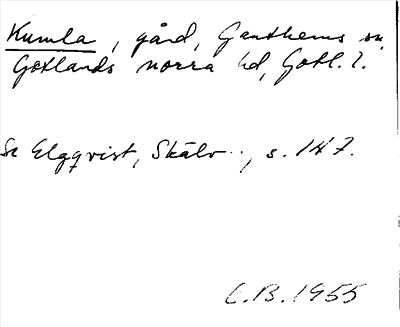 Kumla, gård, Ganthems sn,
Gotlands norra hd, Gotl. l.
Se Elgqvist, Skälv.., s. 147.
C.B. 1955